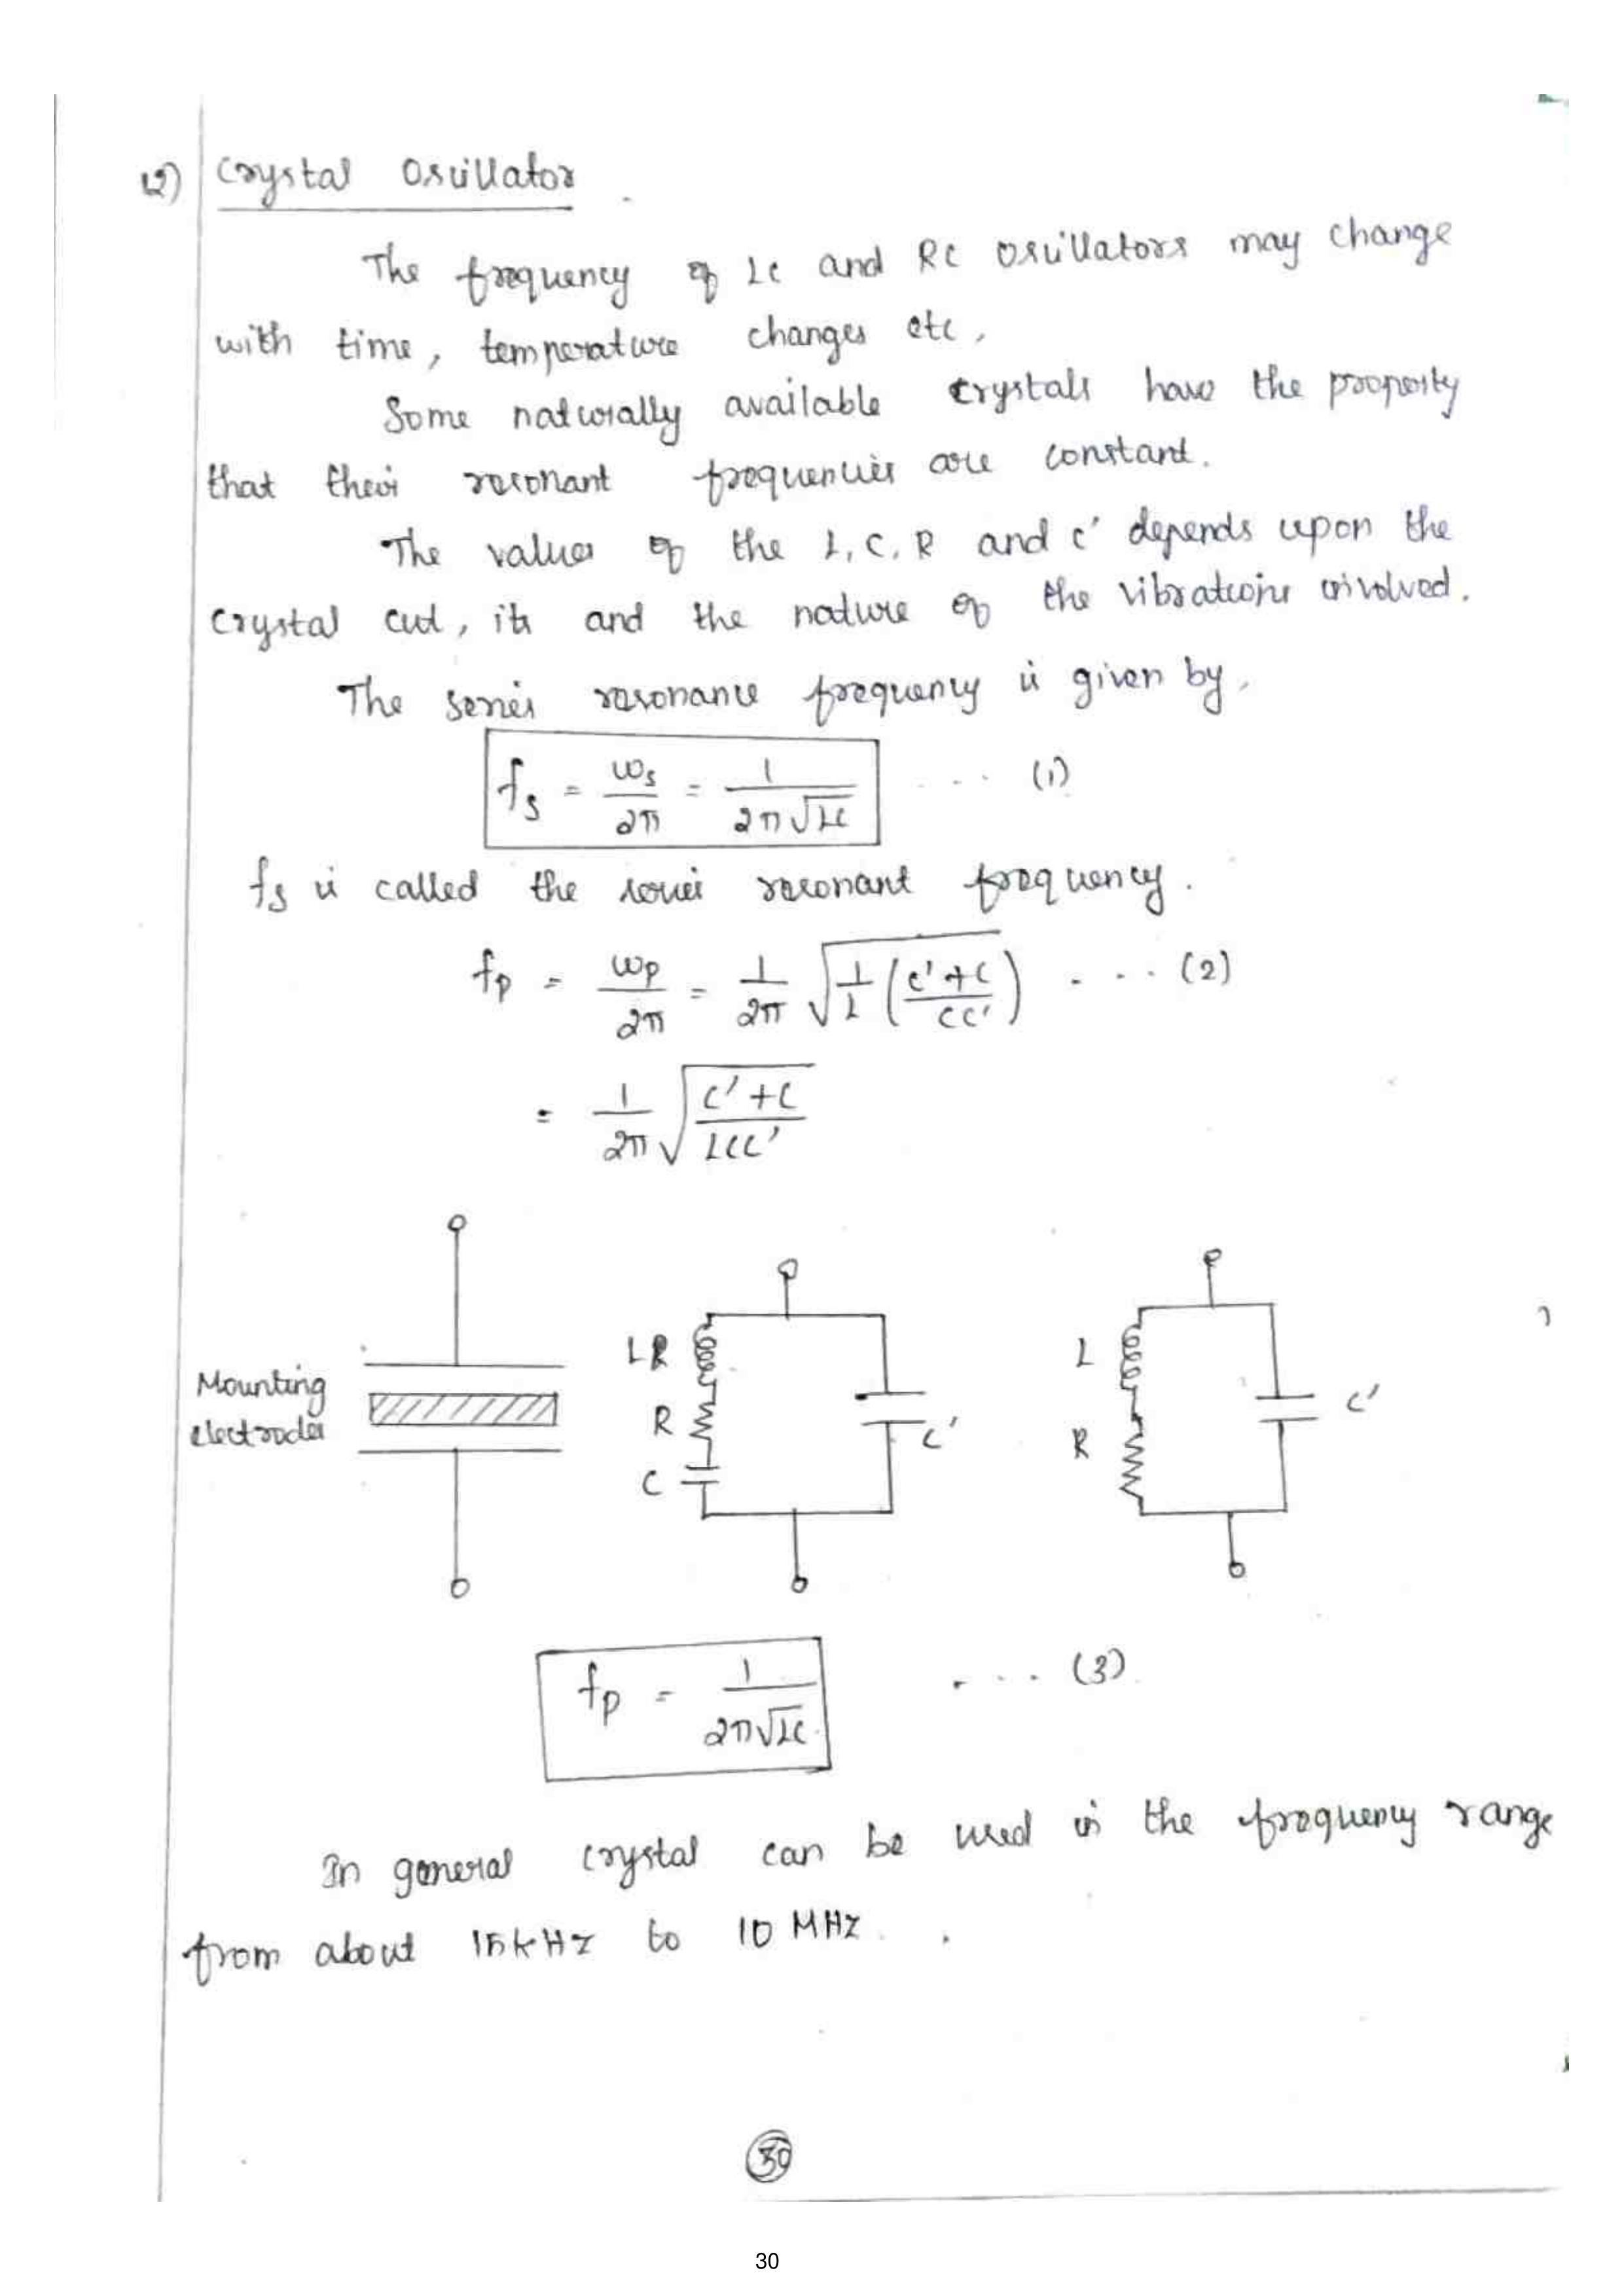 12) Crystal Oscillator
The frequency of LC and RC oscillators may change
with time, temperature changes etc,
Some naturally available crystals have the property
that their resonant frequencies are constant.
The values of the L, C, R and C' depends upon the
crystal cut, its and the nature of the vibrations involved.
The series resonance frequency is given by,
fs = ωs/2π = 1/2π√LC ... (1)
fs is called the series resonant frequency.
fp = ωp/2π = 1/2π √1/L (C'+C/CC') ... (2)
= 1/2π √C'+C/LCC'
Mounting
electrodes
L R
R
C
C'
L
R
C'
fp = 1/2π√LC ... (3)
In general crystal can be used in the frequency range
from about 15kHz to 10 MHz.
30
30